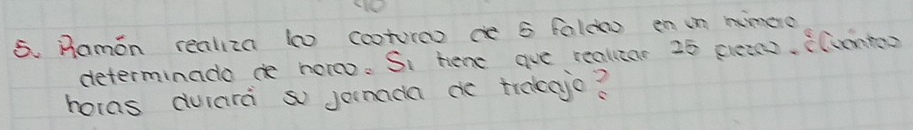 5. Ramón realiza las costuras de 5 faldas en un número
determinado de horas. Si tiene que realizar 25 piezas. ¿Cuántas
horas durará su jornada de trabajo?